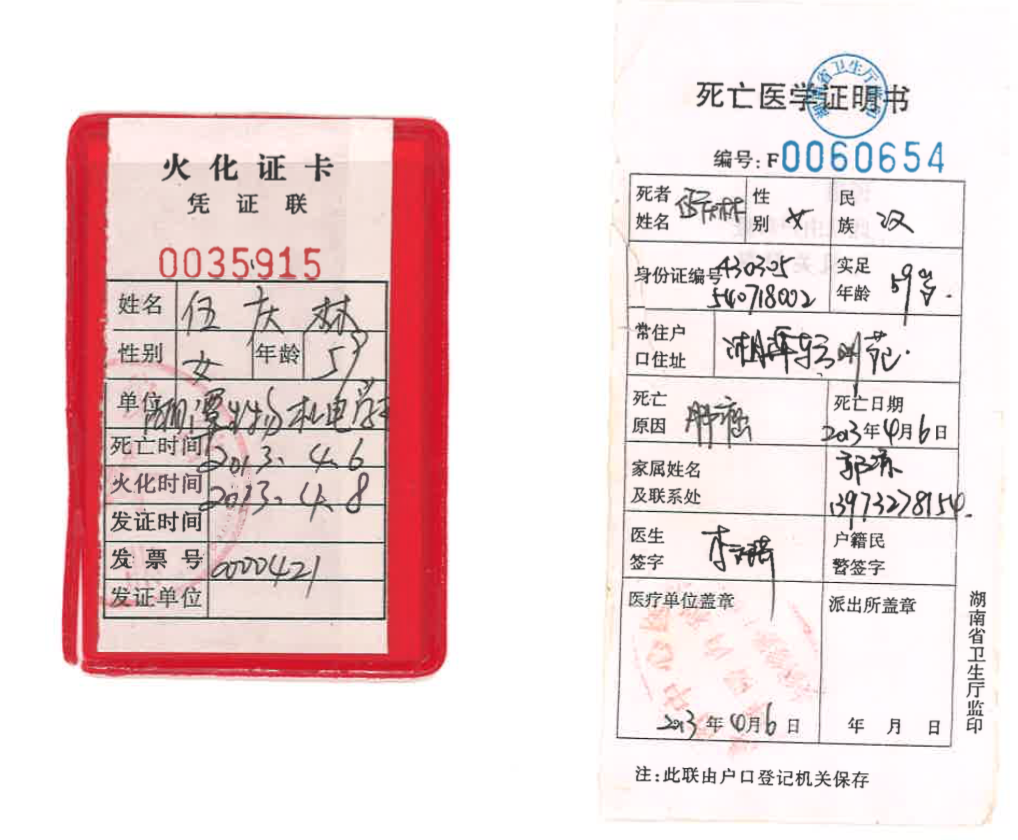 火化证卡
凭证联
0035915
姓名 伍庆林
性别 女 年龄 59
单位 湘潭 机电
死亡时间 2013.4.6
火化时间 2013.4.8
发证时间
发票号 0000421
发证单位
死亡医学证明书
湖南省卫生厅
编号:F0060654
死者姓名 伍庆林 性别 女 民族 汉
身份证编号 430305
540718002
实足年龄 59岁.
常住户口住址
死亡原因 肺癌
死亡日期
2013年4月6日
家属姓名及联系处
13973278154.
医生签字 李
户籍民警签字
医疗单位盖章
派出所盖章
中心医
2013年4月6日
年 月 日
湖南省卫生厅监印
注:此联由户口登记机关保存